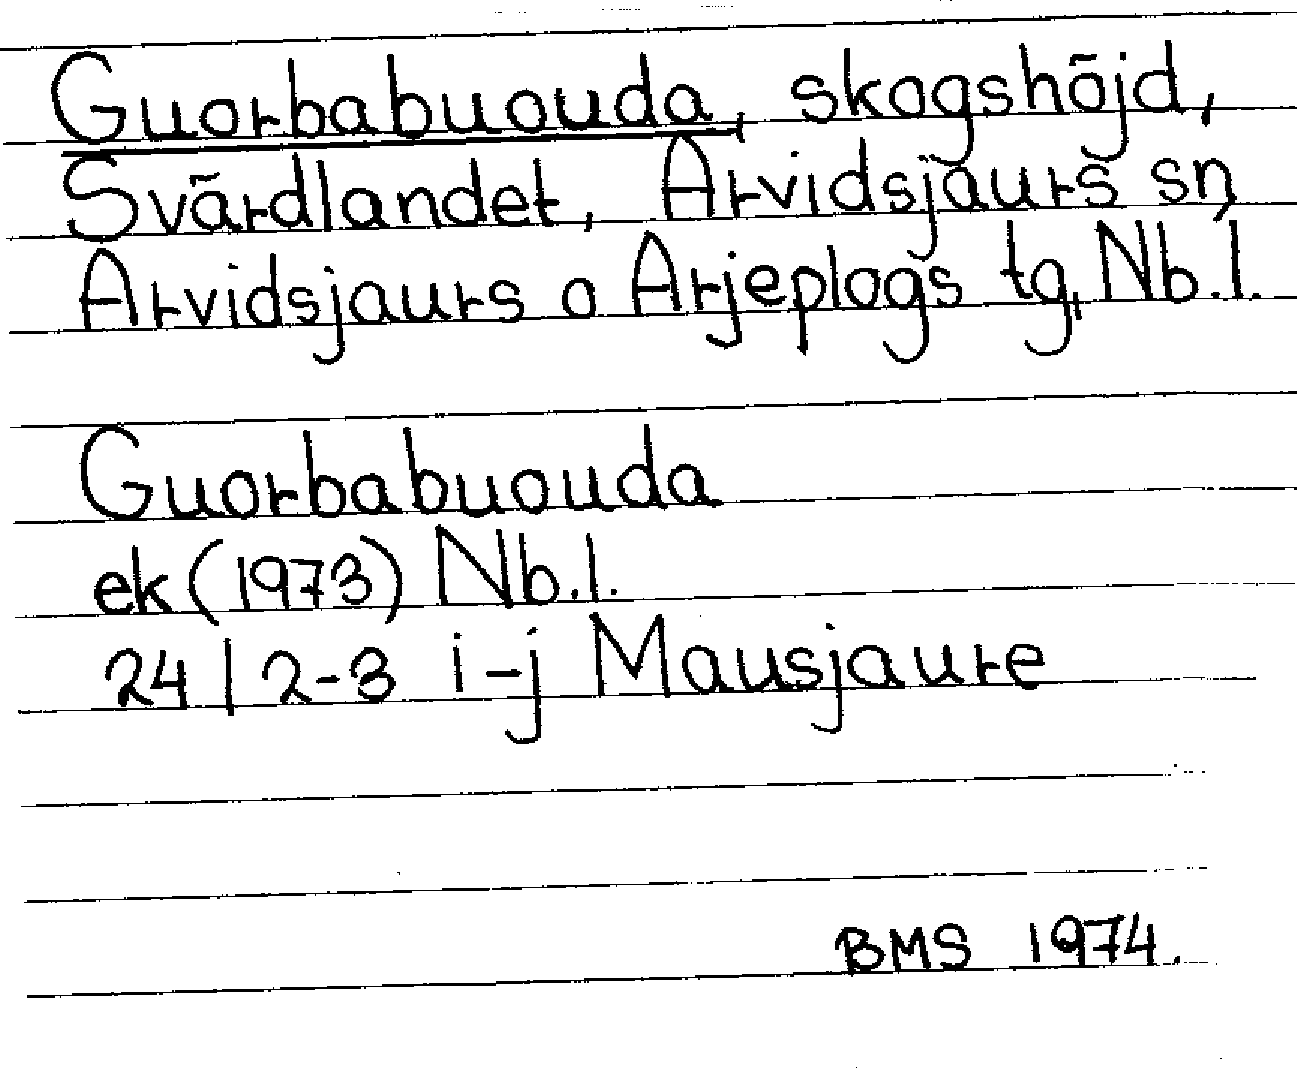 Guorbabuouda, skogshöjd,
Svärdlandet, Arvidsjaurs sn,
Arvidsjaurs o Arjeplogs tg, Nb.l.
Guorbabuouda
ek (1973) Nb.l.
24 | 2-3 i-j Mausjaure
BMS 1974.